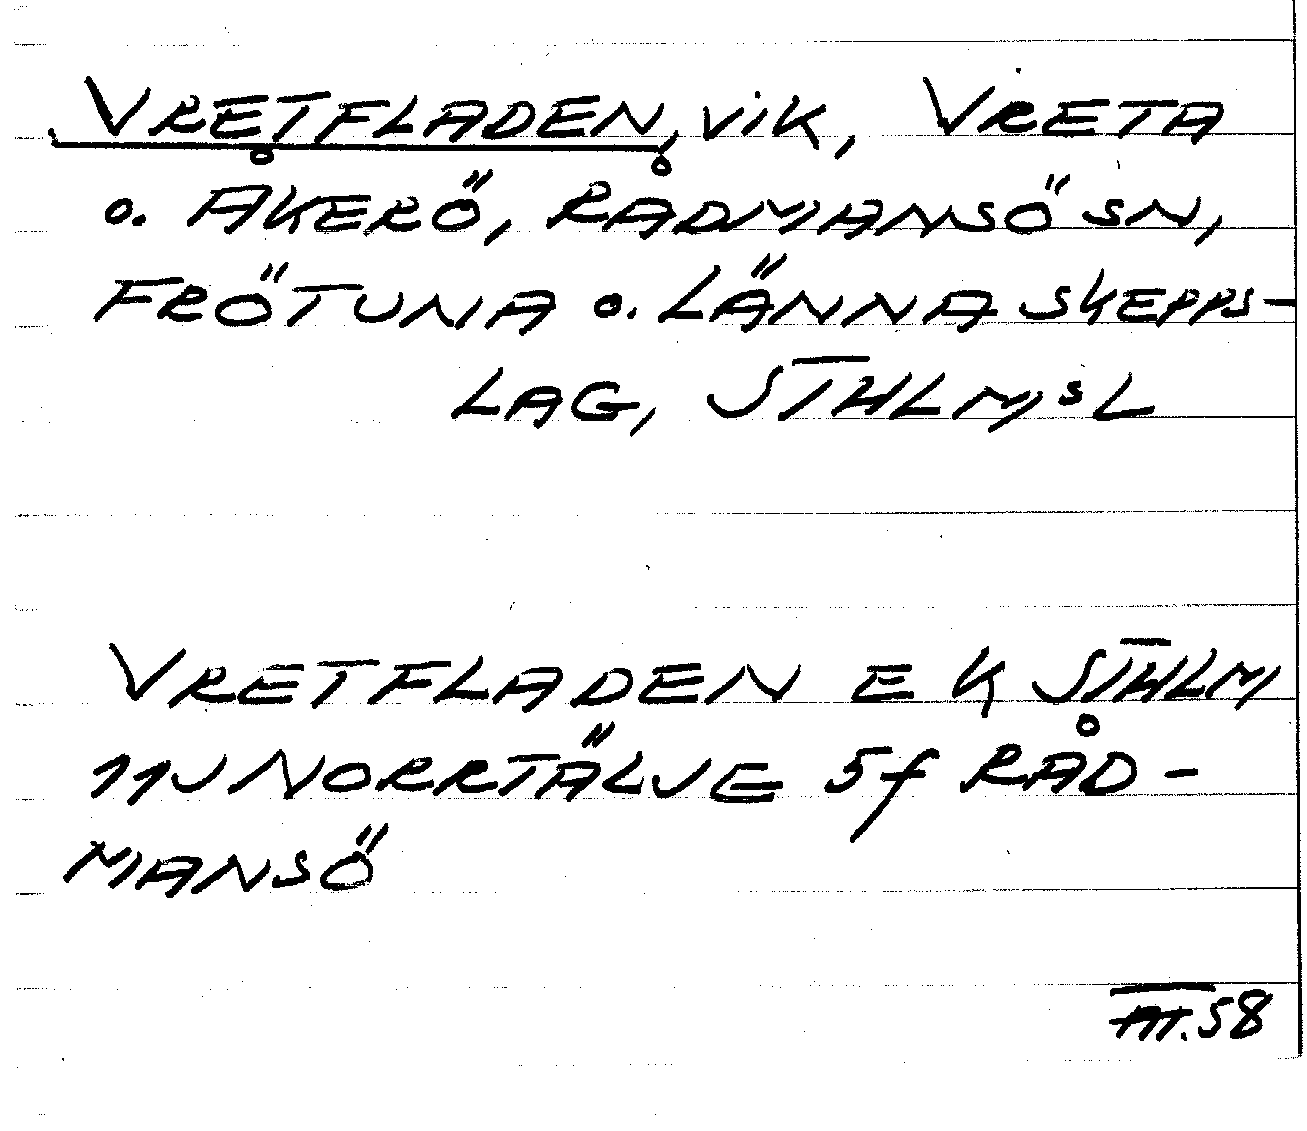 VRETFLADEN, VIK, VRETA
o. ÅKERÖ, RÅDMANSÖ SN,
FRÖTUNA o. LÄNNA SKEPPS-
LAG, STHLMS L
VRETFLADEN EK STHLM
11J NORRTÄLJE 5f RÅD-
MANSÖ